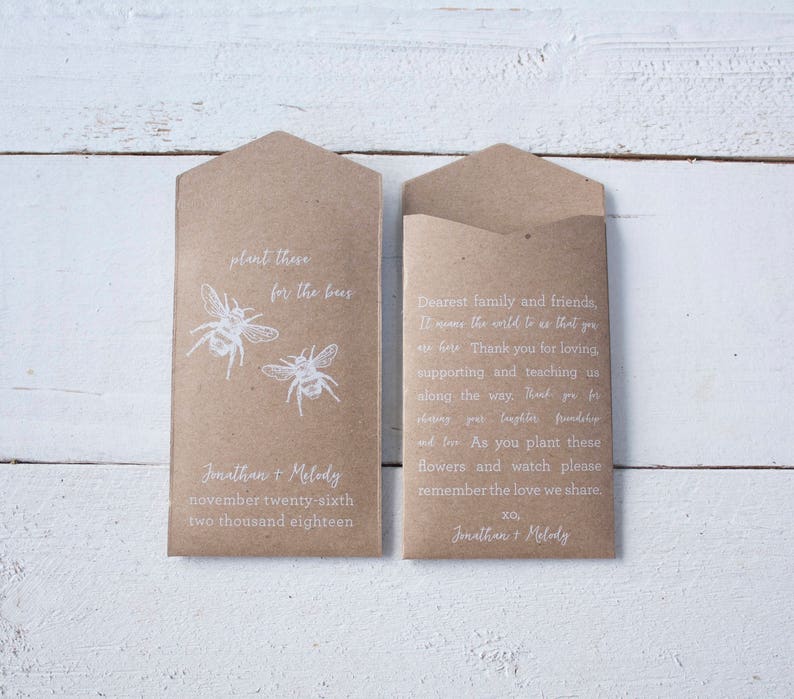 plant these
for the bees
Jonathan + Melody
november twenty-sixth
two thousand eighteen
Dearest family and friends,
It means the world to us that you
are here. Thank you for loving,
supporting and teaching us
along the way. Thank you for
sharing your laughter friendship
and love. As you plant these
flowers and watch please
remember the love we share.
xo,
Jonathan + Melody